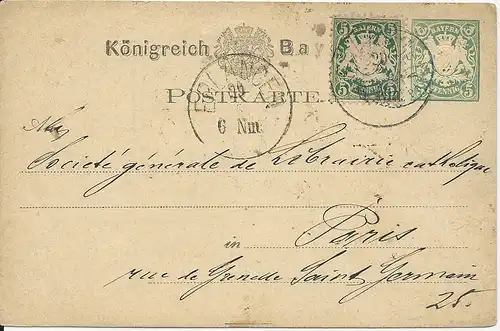 Königreich Bayern
BAYERN
5 5
5 5
PFENNIG
BAYERN
5 5
PFENNIG
POSTKARTE.
29
6 Nm
Société générale de Librairie catholique
in Paris
rue de Grenelle Saint Germain
25.